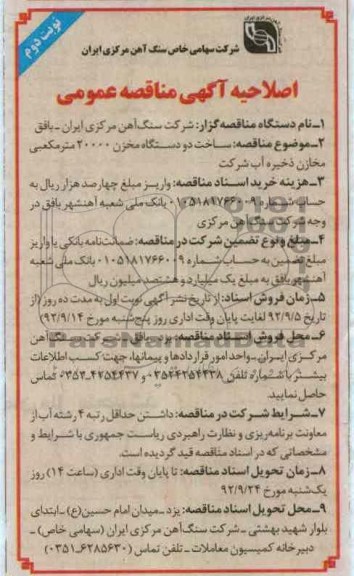 نوبت دوم
شرکت سهامی خاص سنگ آهن مرکزی ایران
اصلاحیه آگهی مناقصه عمومی
۱ـ نام دستگاه مناقصه گزار: شرکت سنگ آهن مرکزی ایران ـ بافق
۲ـ موضوع مناقصه: ساخت دو دستگاه مخزن ۲۰۰۰۰ مترمکعبی
مخازن ذخیره آب شرکت
۳ـ هزینه خرید اسناد مناقصه: واریز مبلغ چهارصد هزار ریال به
حساب شماره ۰۱۰۵۱۸۱۷۶۶۰۰۹ بانک ملی شعبه آهنشهر بافق در
وجه شرکت سنگ آهن مرکزی
۴ـ مبلغ و نوع تضمین شرکت در مناقصه: ضمانت‌نامه بانکی یا واریز
مبلغ تضمین به حساب شماره ۰۱۰۵۱۸۱۷۶۶۰۰۹ بانک ملی شعبه
آهنشهر بافق به مبلغ یک میلیارد و هشتصد میلیون ریال
۵ـ زمان فروش اسناد: از تاریخ نشر آگهی نوبت اول به مدت ده روز (از
تاریخ ۹۲/۹/۵ لغایت پایان وقت اداری روز پنج‌شنبه مورخ ۹۲/۹/۱۴)
۶ـ محل فروش اسناد مناقصه: یزد ـ بافق ـ شرکت سنگ آهن
مرکزی ایران ـ واحد امور قراردادها و پیمانها، جهت کسب اطلاعات
بیشتر با شماره تلفن ۰۳۵۲۴۲۵۴۴۳۸ و ۰۳۵۳-۴۲۵۴۴۳۷ تماس
حاصل نمایید.
۷ـ شرایط شرکت در مناقصه: داشتن حداقل رتبه ۴ رشته آب از
معاونت برنامه‌ریزی و نظارت راهبردی ریاست جمهوری با شرایط و
مشخصاتی که در اسناد مناقصه قید گردیده است.
۸ـ زمان تحویل اسناد مناقصه: تا پایان وقت اداری (ساعت ۱۴) روز
یک‌شنبه مورخ ۹۲/۹/۲۴
۹ـ محل تحویل اسناد مناقصه: یزد ـ میدان امام حسین(ع) ـ ابتدای
بلوار شهید بهشتی ـ شرکت سنگ آهن مرکزی ایران (سهامی خاص) ـ
دبیرخانه کمیسیون معاملات ـ تلفن تماس (۶۲۸۵۶۳۰-۰۳۵۱)